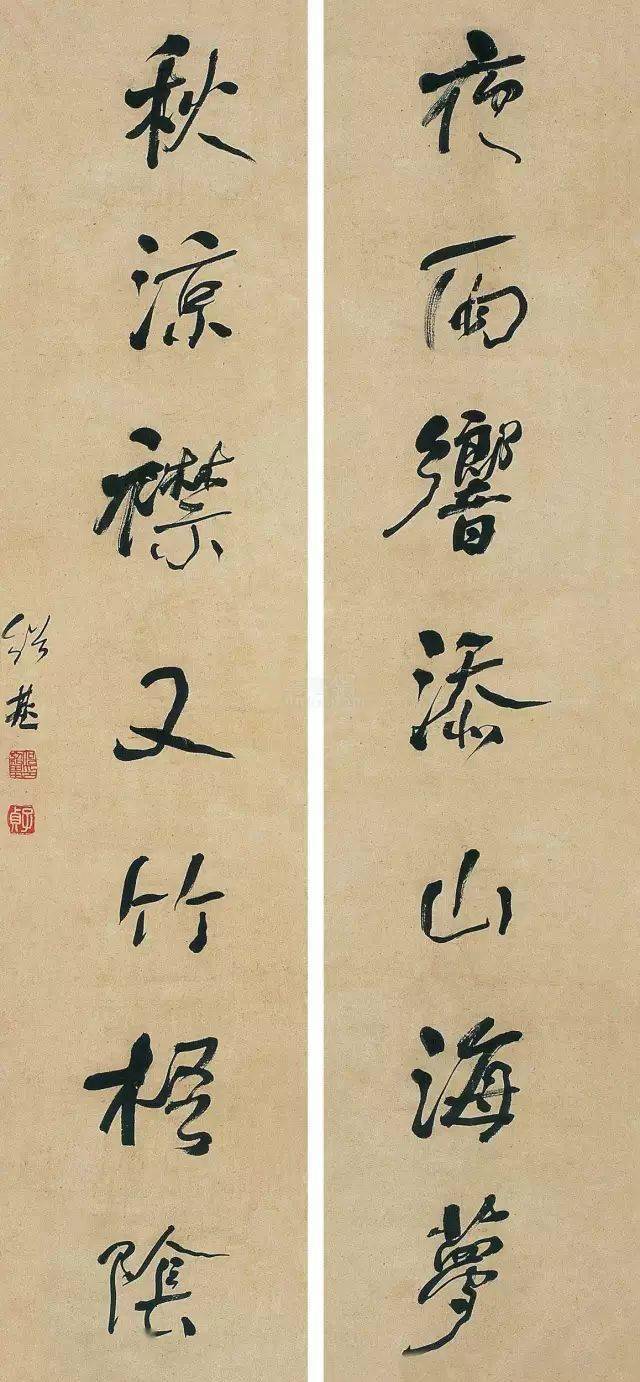 夜雨響添山海夢
秋涼襟又竹梧陰
紹基
子貞